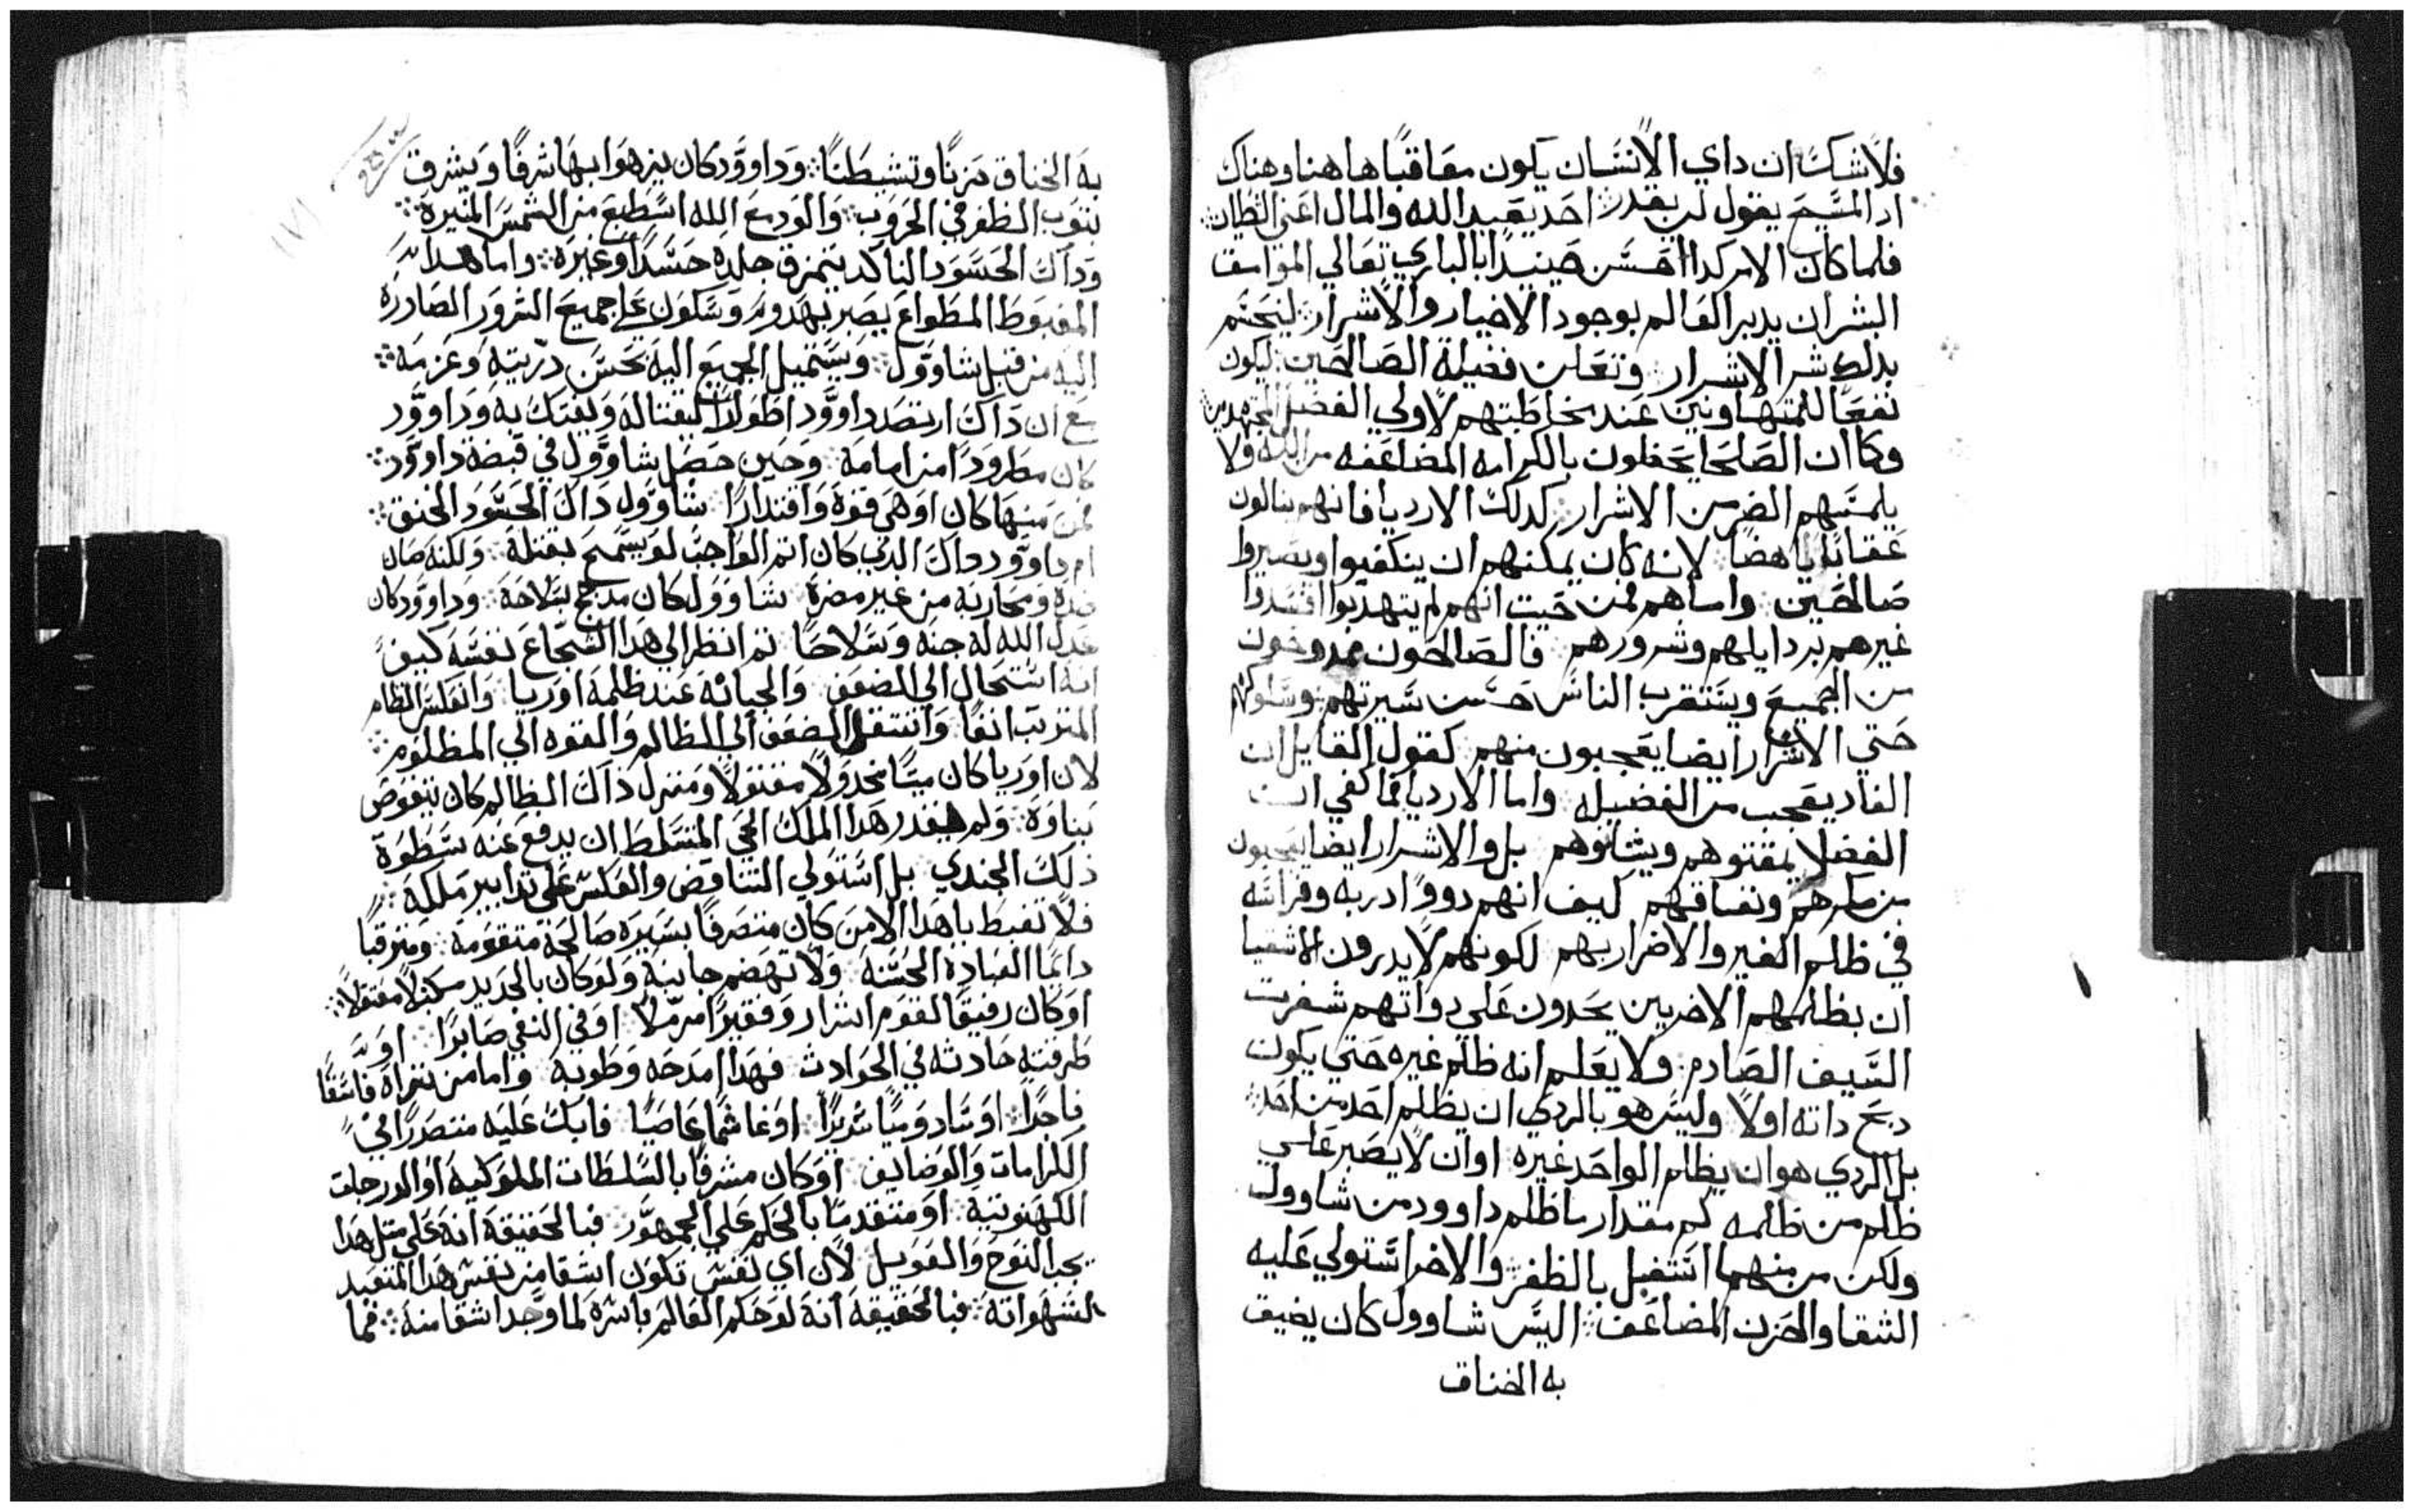 فلاشك ان داي الانسان يكون معاقبًا هاهنا وهناك
اد المسيح يقول لن يقدر احد يعبد الله والمال اعني الشيطان
فلما كان الامر كدا احسن حينيدًا بالباري تعالي الموانسف
البشر ان يدبر العالم بوجود الاخيار والاشرار ليختم
بدلك شر الاشرار وتعلن فضيلة الصالحين ليكون
نفعًا للمتهاونين عند مخاطبتهم لاولي الفضل المجتهدين
وكما ان الصلحا يحفلون بالكرامه المضاعفه من الله ولا
يلمسهم الضر من الاشرار كدلك الارديا فانهم ينالون
عقابًا باهضًا لانه كان يمكنهم ان ينكفيوا ويصيروا
صالحين واما هم فمن حيت انهم لم يتهدبوا افسدوا
غيرهم بردايلهم وشرورهم فالصالحون ممدوحون
من الجميع ويستقرب الناس حسن سيرتهم وسلوكهم
حتي الاشرار ايضا يعجبون منهم كقول القايل ان
الفاد يعجب من الفضيله واما الارديا فما كفي ان
الفضلا يمقتوهم ويشانوهم بل والاشرار ايضا يعجبون
من مكرهم ونفاقهم كيف انهم دووا دربه وفراسه
في ظلم الغير والاضرار بهم لكونهم لا يدرون الاشقيا
ان بظلمهم الاخريين يحدون علي دواتهم شفرت
السيف الصارم ولا يعلم انه ظلم غيره حتي يكون
دبح داته اولًا وليس هو بالردي ان يظلم احد من احد
بل الردي هو ان يظلم الواحد غيره او ان لا يصبر علي
ظلم من ظلمه كم مقدار ما ظلم داوود من شاوول
ولكن من منهما استقبل بالظفر والاخر استولي عليه
الشقا والحزن المضاعف اليس شاوول كان يضيق
به الخناق
به الخناق حزنًا وتشيطنًا وداوود كان يزهوا بهاشرفًا ويشرق
بتوب الظفر في الحروب والوديع الله اسطع من الشمس المنيرة
وداك الحسود الناكد يتمزق جلده حسدًا وغيرة واما هدا
المغبوط المطواع يصبر بهدوء وسكون علي جميع الشرور الصادرة
اليه من قبل شاوول ويستميل الجميع اليه بحسن دريته وعزمه
مع ان داك ارتصد داوود اطوارًا ليغتاله ويفتك به وداوود
كان مطرودًا من امامه وحين حصل شاوول في قبضة داوود
فمن منهما كان اوهي قوة واقتدارًا شاوول داك الحسود الخنق
ام داوود دواك الدي كان اتم الواجب لو يسمح بقتله ولكنه صان
ضده ومحاربه من غير مضرة شاوول كان مدجج بسلاحه وداوود كان
عدل الله له جنه وسلاحًا تم انظر الي هدا الشجاع نفسه كيف
انه استحال الي الضعف والجبانه عند ظلمه اوريا وانعكس النظام
المترتب انفًا وانتقل الضعف الي الظالم والقوه الي المظلوم
لان اوريا كان ميتًا مجدولًا مقتولًا ومنزل داك الظالم كان يتقوض
بناوة ولم يقدر هدا الملك الحي المتسلط ان يدفع عنه سطوة
ذلك الجندي بل استولي التناقض والعكس علي تدابير ملكه
فلا تغبط ياهدا الا من كان متصرفًا بسيره صالحة متقومه ومترقبًا
دايمًا العبادة الحسنه ولا تهضم جانبه ولو كان بالحديد مكبلًا مغلولًا
او كان رفيقًا لقوم اشرار وفقيرًا مرملًا او في النفي صابرًا او
طرقته حادثه في الحوادث فهدا امدحه وطوبه واما من تراه فاسقًا
فاجدًا او سادوميًا شريرًا او غاشمًا عاصيًا فابك عليه متصدرًا في
الكرامات والوضايف او كان مشرفًا بالسلطات الملوكيه او الدرجات
الكهنوتيه او متقدمًا بالحكم علي الجمهور فبالحقيقة انه علي متل هدا
يجب النوح والعويل لان اي نفس تكون اشقا من نفس هدا المتعبد
لشهواته فبالحقيقه انه لو حكم العالم باسره لما وجد اشقا منه فما